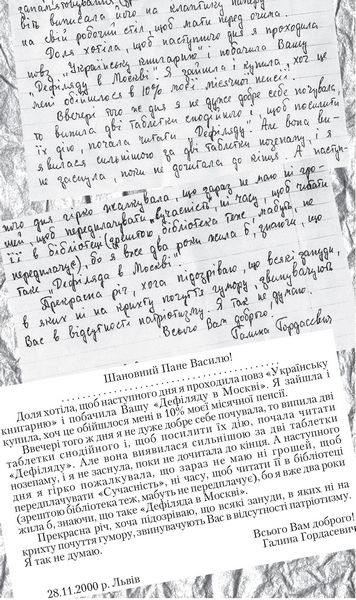 запам
віть виписала його на клаптику паперу
на свій робочий стіл, щоб мати перед очима.
Доля хотіла, щоб наступного дня я проходила
повз „Українську книгарню" і побачила Вашу
„Дефіляду в Москві". Я зайшла і купила, хоч це
мені обійшлося в 10% моєї місячної пенсії.
Ввечері того ж дня я не дуже добре себе почувала,
то випила дві таблетки снодійного і, щоб посилити
їх дію, почала читати „Дефіляду". Але вона ви-
явилася сильнішою за дві таблетки нозепаму, і я
не заснула, поки не дочитала до кінця. А наступ-
ного дня гірко жалкувала, що зараз не маю ні гро-
шей, щоб передплачувати „Сучасність", ні часу, щоб читати
її в бібліотеці (зрештою, бібліотека теж, мабуть, не
передплачує), бо я вже два роки жила б, знаючи, що
таке „Дефіляда в Москві".
Прекрасна річ, хоча підозріваю, що всякі зануди,
в яких ні на крихту почуття гумору, звинувачують
Вас в відсутності патріотизму. Я так не думаю.
Всього Вам доброго!
Галина Гордасевич
Шановний Пане Василю!
Доля хотіла, щоб наступного дня я проходила повз «Українську
книгарню» і побачила Вашу «Дефіляду в Москві». Я зайшла і
купила, хоч це обійшлося мені в 10% моєї місячної пенсії.
Ввечері того ж дня я не дуже добре себе почувала, то випила дві
таблетки снодійного і, щоб посилити їх дію, почала читати
«Дефіляду». Але вона виявилася сильнішою за дві таблетки
нозепаму, і я не заснула, поки не дочитала до кінця. А наступного
дня я гірко пожалкувала, що зараз не маю ні грошей, щоб
передплачувати «Сучасність», ні часу, щоб читати її в бібліотеці
(зрештою бібліотека теж, мабуть, не передплачує), бо я вже два роки
жила б, знаючи, що таке «Дефіляда в Москві».
Прекрасна річ, хоча підозріваю, що всякі зануди, в яких ні на
крихту почуття гумору, звинувачують Вас в відсутності патріотизму.
Я так не думаю.
Всього Вам доброго!
Галина Гордасевич
28.11.2000 р. Львів